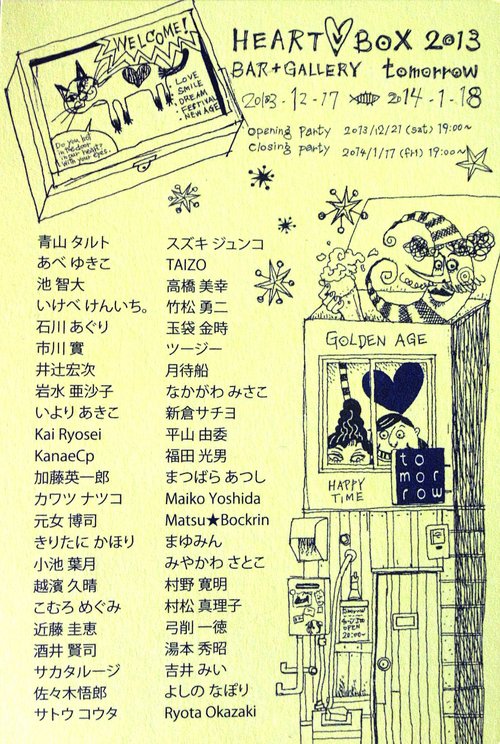 WELCOME!
LOVE
SMILE
DREAM
FESTIVAL
NEW AGE
with your eyes.
HEART BOX 2013
BAR+GALLERY tomorrow
2013-12-17 2014-1-18
opening party 2013/12/21 (sat) 19:00~
closing party 2014/1/17 (fri) 19:00~
青山 タルト
あべ ゆきこ
池 智大
いけべ けんいち。
石川 あぐり
市川 寶
井辻宏次
岩水 亜沙子
いより あきこ
Kai Ryosei
KanaeCp
加藤英一郎
カワツ ナツコ
元女 博司
きりたに かほり
小池 葉月
越濱 久晴
こむろ めぐみ
近藤 圭恵
酒井 賢司
サカタルージ
佐々木悟郎
サトウ コウタ
スズキ ジュンコ
TAIZO
高橋 美幸
竹松 勇二
玉袋 金時
ツージー
月待船
なかがわ みさこ
新倉サチヨ
平山 由委
福田 光男
まつばら あつし
Maiko Yoshida
Matsu★Bockrin
まゆみん
みやかわ さとこ
村野 寛明
村松 真理子
弓削 一徳
湯本 秀昭
吉井 みい
よしの なぽり
Ryota Okazaki
GOLDEN AGE
HAPPY
TIME
to
mor
row
tomorrow
OPEN
20:00~